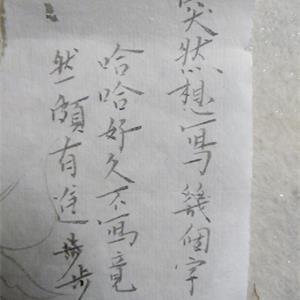 突然想写幾個字
哈哈好久不写竟
然頗有進步步